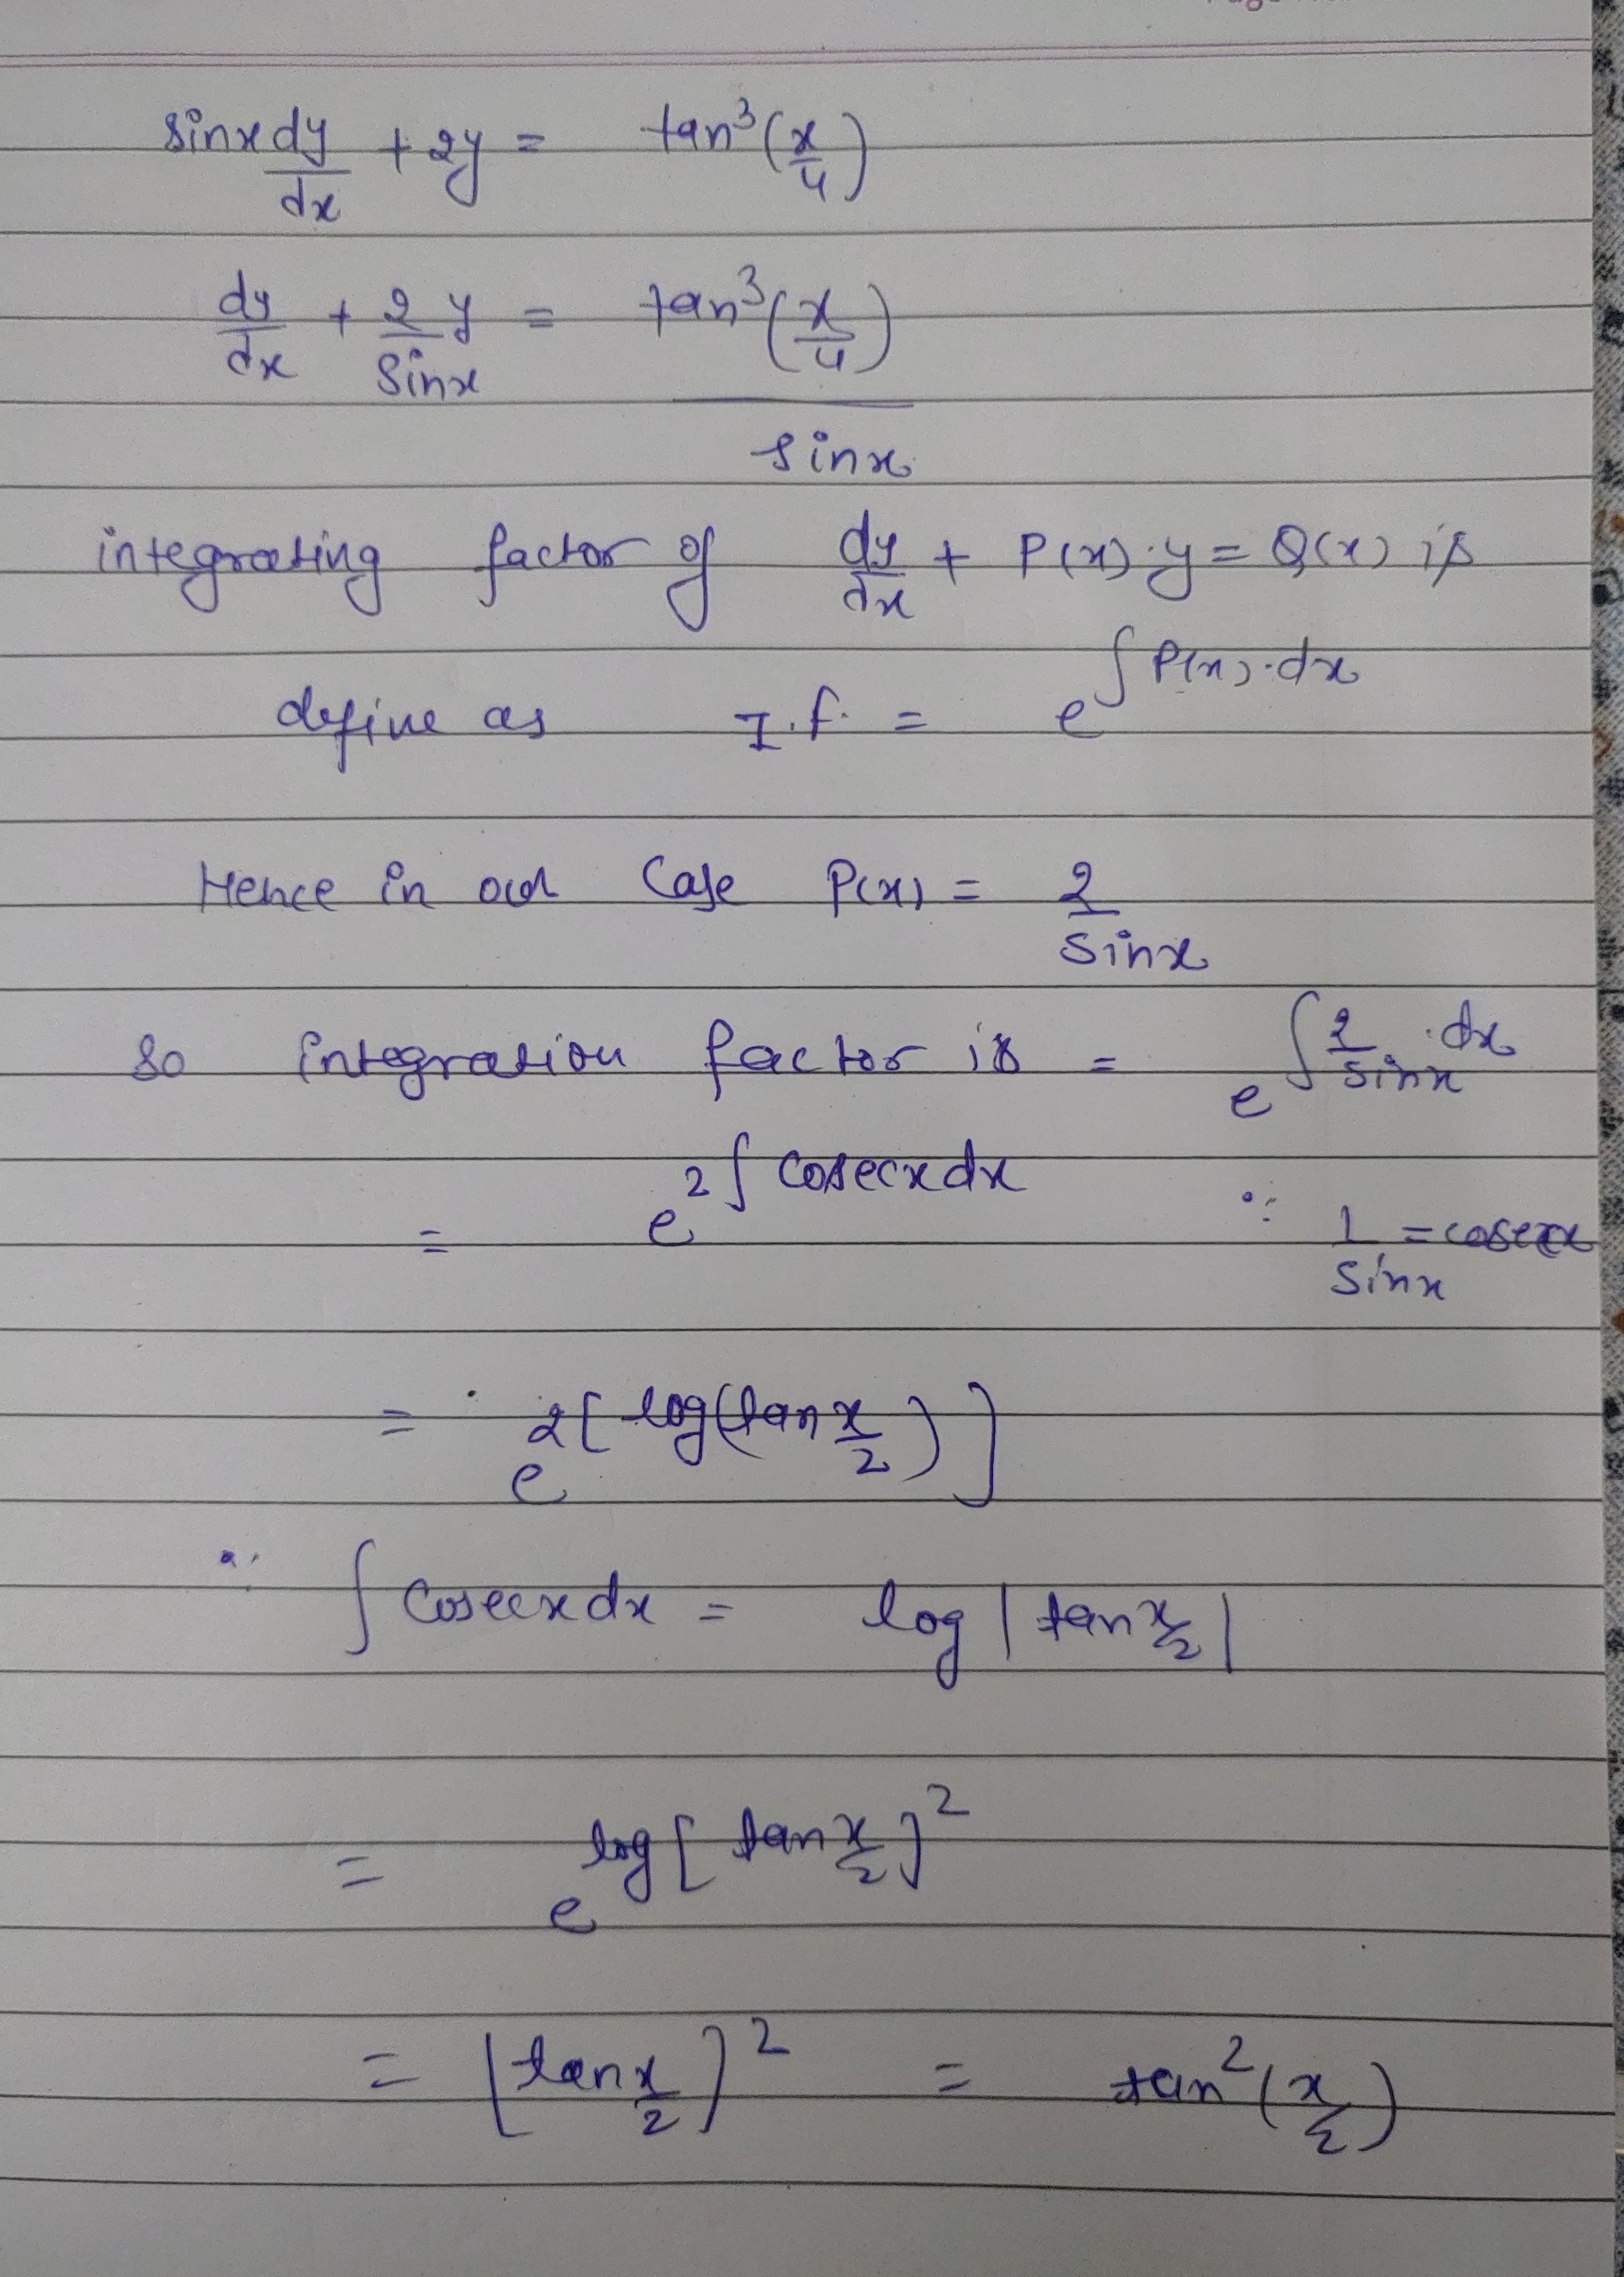 sinx dy/dx + 2y = tan³(x/4)
dy/dx + 2/sinx y = tan³(x/4)/sinx
integrating factor of dy/dx + P(x)·y = Q(x) is
define as I.f. = e^∫P(x)·dx
Hence in our Case P(x) = 2/sinx
So integration factor is = e^∫2/sinx ·dx
= e^2∫cosecxdx ∵ 1/sinx = cosecx
= e^2[log(tan x/2)]
∵ ∫cosecxdx = log|tan x/2|
= e^log[tan x/2]²
= [tan x/2]² = tan²(x/2)